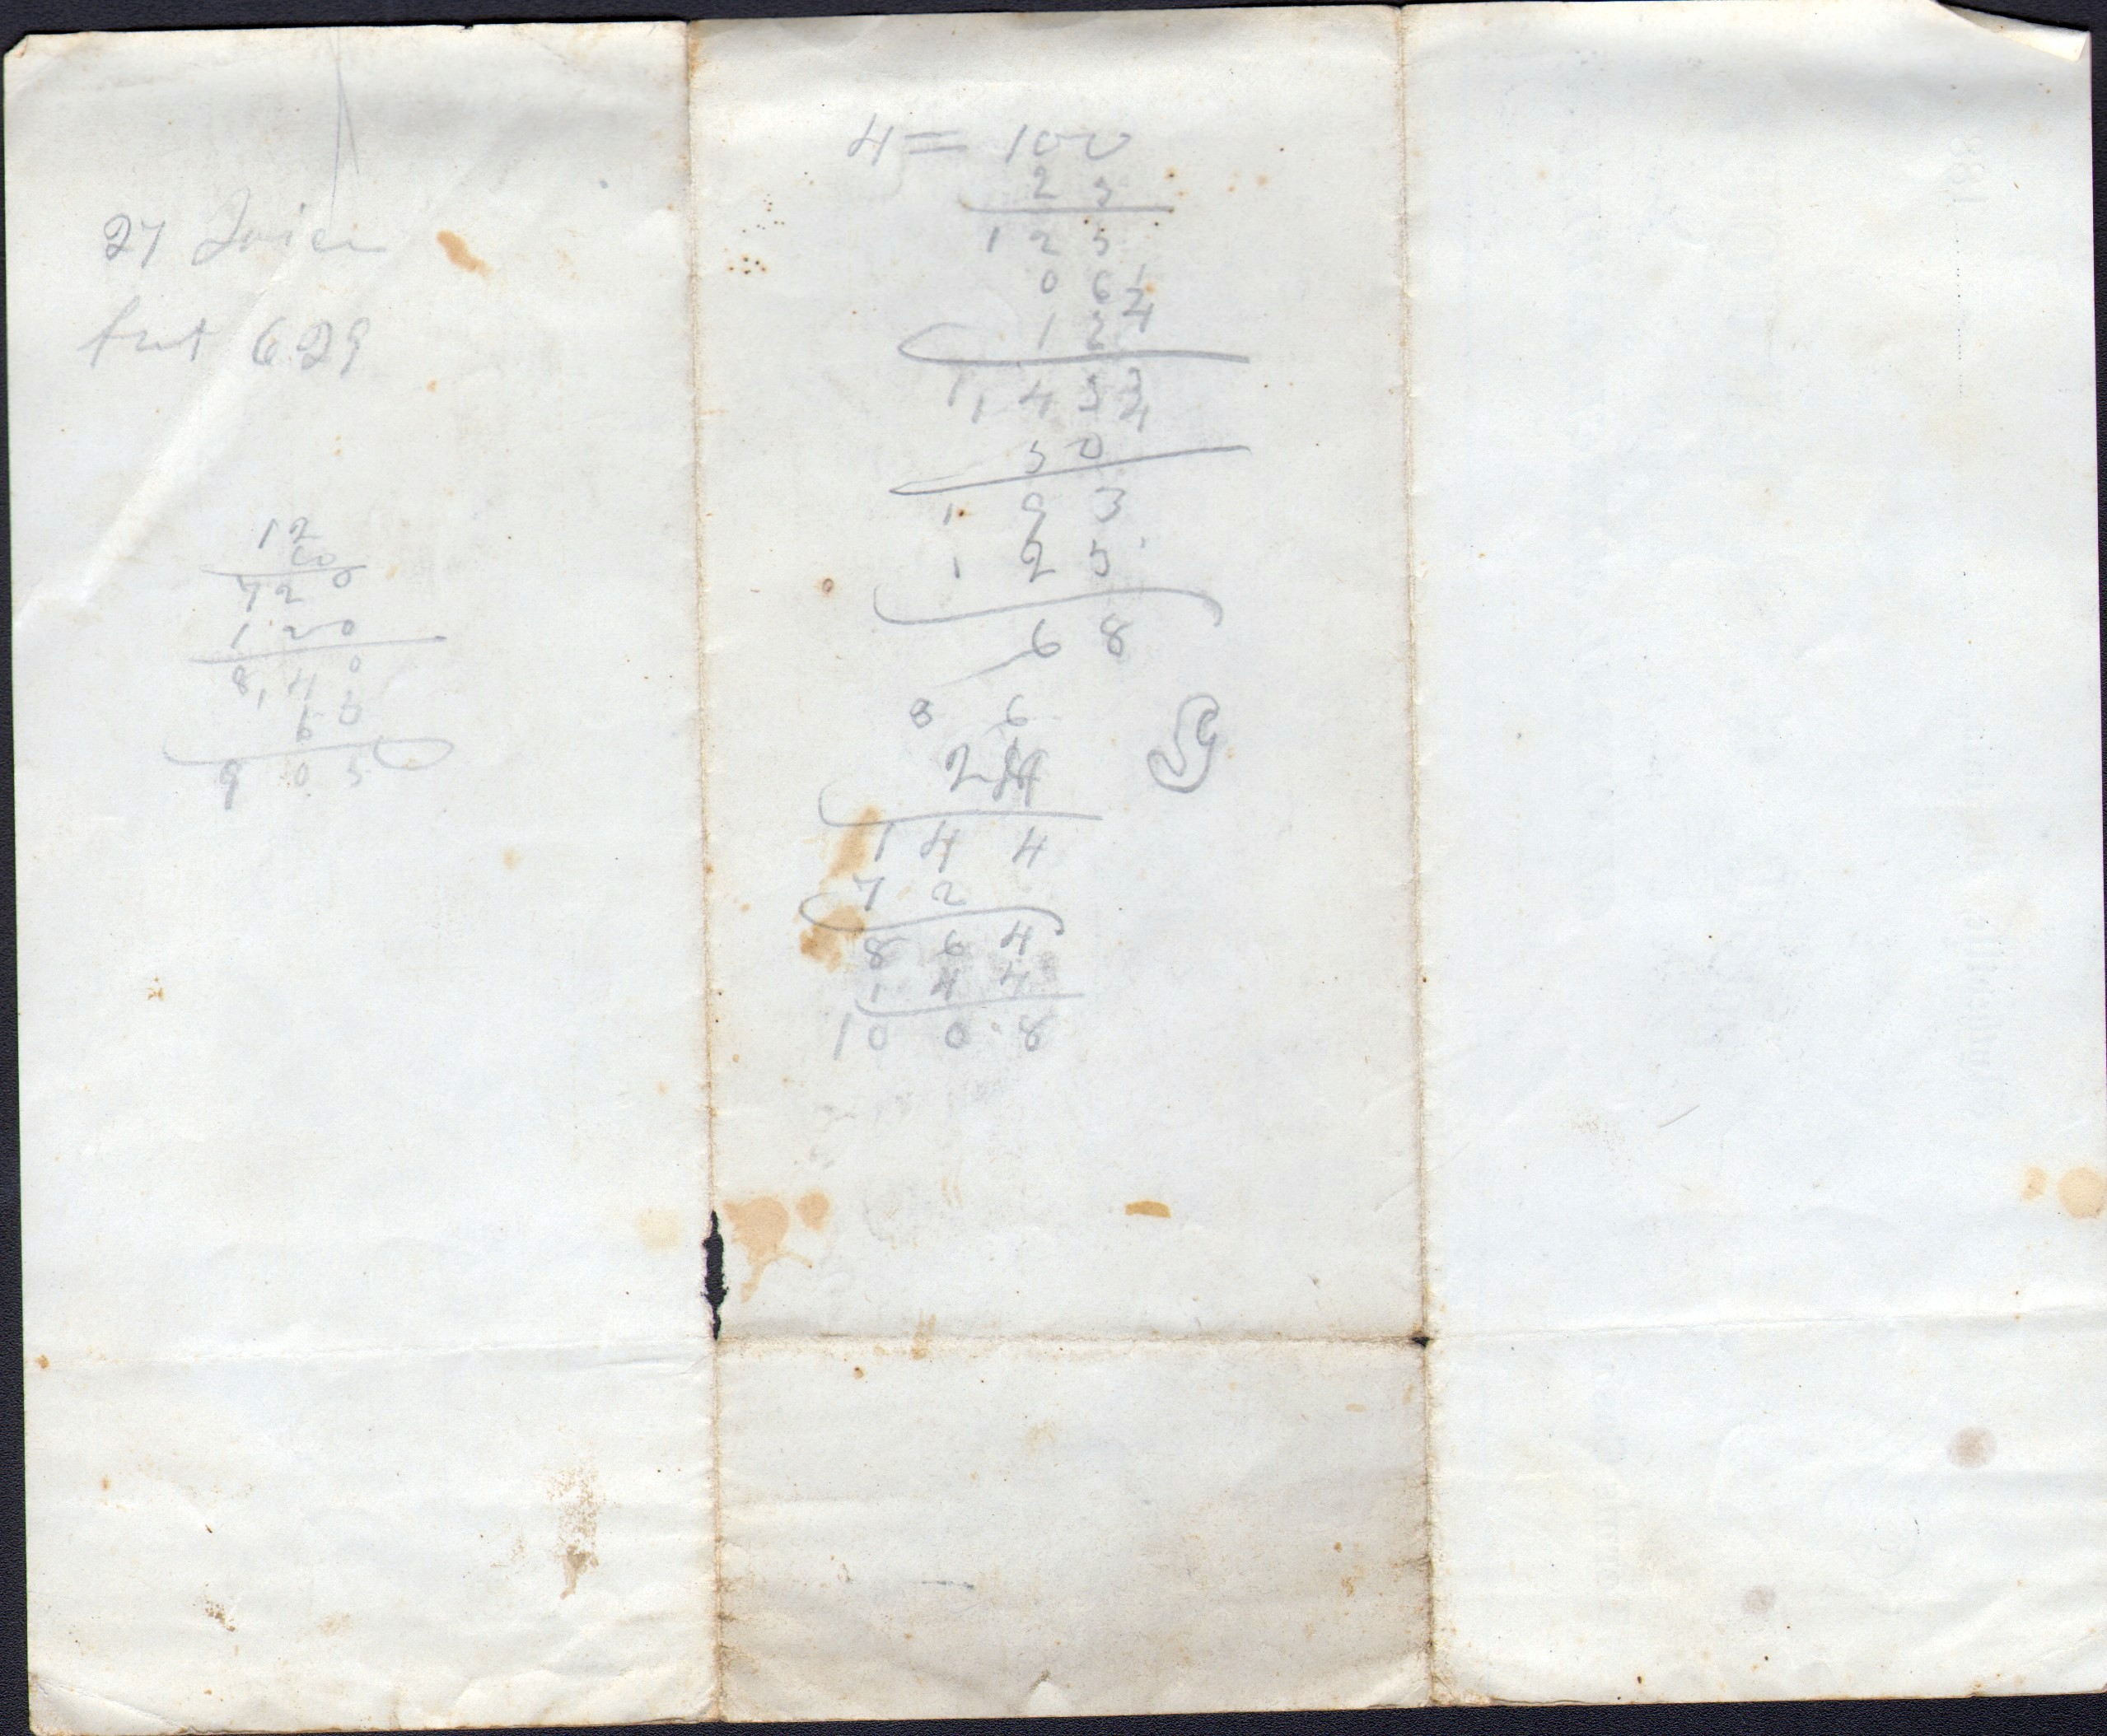 27
629
12
60
720
120
8,40
65
905
4 = 100
25
125
06 1/4
12 2/4
1,43 3/4
50
193
125
68
36
24
144
72
864
144
1008